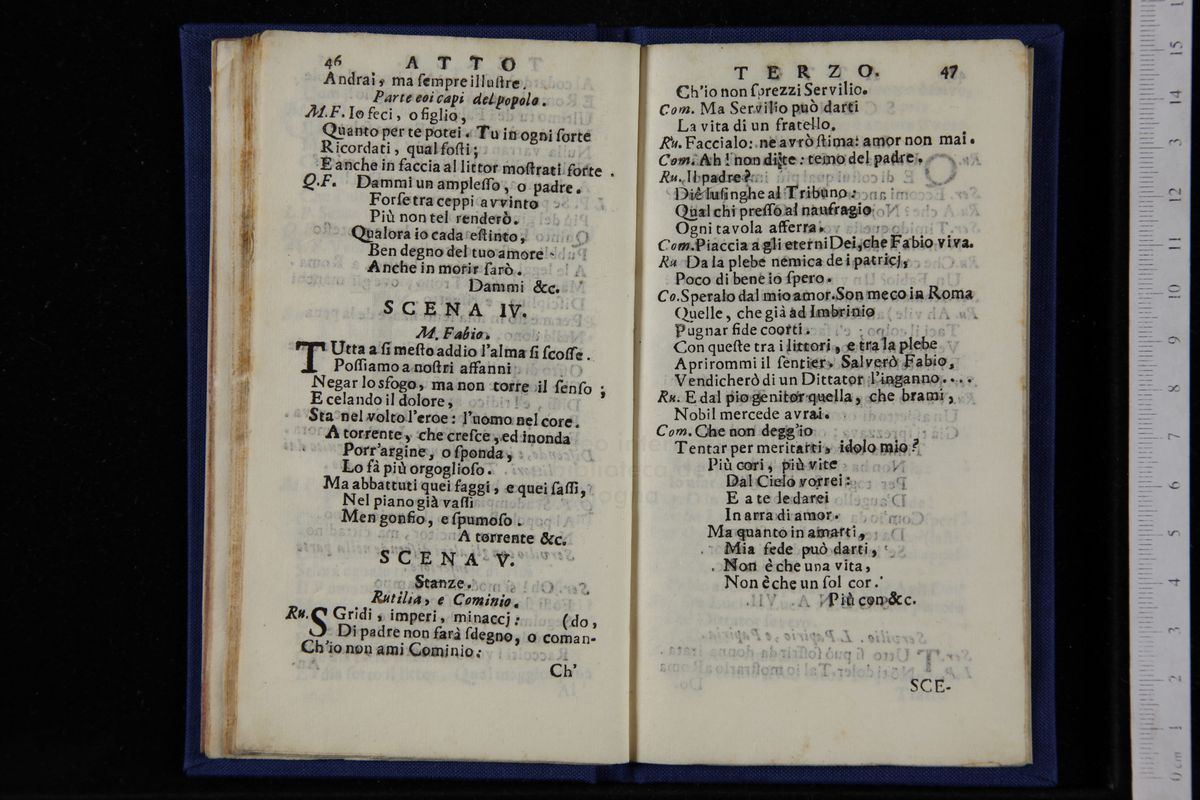 46 ATTO
Andrai, ma ſempre illuſtre.
Parte coi capi del popolo.
M.F. Io feci, o figlio,
Quanto per te potei. Tu in ogni ſorte
Ricordati, qual foſti;
E anche in faccia al littor moſtrati forte.
Q.F. Dammi un ampleſſo, o padre.
Forſe tra ceppi avvinto
Più non tel renderò.
Qualora io cada eſtinto,
Ben degno del tuo amore
Anche in morir ſarò.
Dammi &c.
SCENA IV.
M. Fabio.
TUtta a ſi meſto addio l'alma ſi ſcoſſe.
Poſſiamo a noſtri affanni
Negar lo sfogo, ma non torre il ſenſo;
E celando il dolore,
Sta nel volto l'eroe: l'uomo nel core.
A torrente, che creſce, ed inonda
Porr'argine, o ſponda,
Lo fà più orgoglioſo.
Ma abbattuti quei faggi, e quei ſaſſi,
Nel piano già vaſſi
Men gonfio, e ſpumoſo.
A torrente &c.
SCENA V.
Stanze.
Rutilia, e Cominio.
Ru. SGridi, imperi, minaccj: (do,
Di padre non farà ſdegno, o coman-
Ch'io non ami Cominio:
Ch'
TERZO. 47
Ch'io non ſprezzi Servilio.
Com. Ma Servilio può darti
La vita di un fratello.
Ru. Faccialo: ne avrò ſtima: amor non mai.
Com. Ah! non dite: temo del padre.
Ru. Il padre?
Diè luſinghe al Tribuno:
Qual chi preſſo al naufragio
Ogni tavola afferra.
Com. Piaccia a gli eterni Dei, che Fabio viva.
Ru Da la plebe nemica de i patricj,
Poco di bene io ſpero.
Co. Speralo dal mio amor. Son meco in Roma
Quelle, che già ad Imbrinio
Pugnar fide coorti.
Con queſte tra i littori, e tra la plebe
Aprirommi il ſentier. Salverò Fabio,
Vendicherò di un Dittator l'inganno....
Ru. E dal pio genitor quella, che brami,
Nobil mercede avrai.
Com. Che non degg'io
Tentar per meritarti, idolo mio?
Più cori, più vite
Dal Cielo vorrei:
E a te le darei
In arra di amor.
Ma quanto in amarti,
Mia fede può darti,
Non è che una vita,
Non è che un ſol cor.
Più con &c.
SCE-